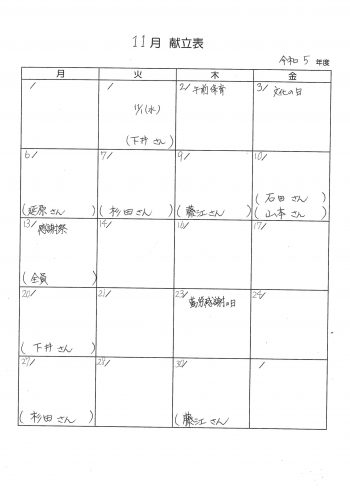 11月 献立表
令和 5 年度
月 火 木 金
/ / 2/ 午前保育 3/ 文化の日
11/1(水)
(下井 さん)
6/ 7/ 9/ 10/
(石田 さん)
(延原 さん) (杉田 さん) (藤江 さん) (山本 さん)
13/ 感謝祭 14/ 16/ 17/
(全員)
20/ 21/ 23/ 勤労感謝の日 24/
(下井 さん)
27/ 28/ 30/ /
(杉田 さん) (藤江 さん)